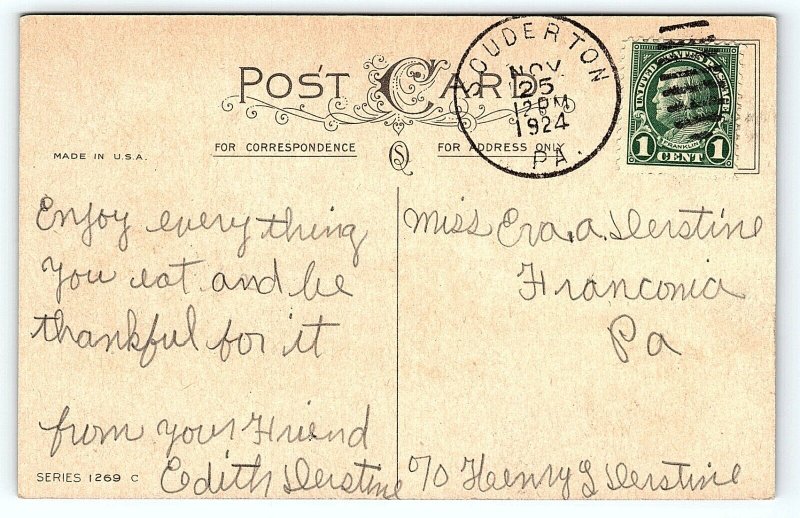 POST CARD
FOR CORRESPONDENCE
FOR ADDRESS ONLY
MADE IN U.S.A.
SOUDERTON
NOV
25
12 PM
1924
PA.
UNITED STATES POSTAGE
FRANKLIN
1 CENT 1
Enjoy everything
you eat and be
thankful for it
from your Friend
Edith Derstine
SERIES 1269 C
Miss Eva. A. Derstine
Franconia
Pa
℅ Henry L Derstine